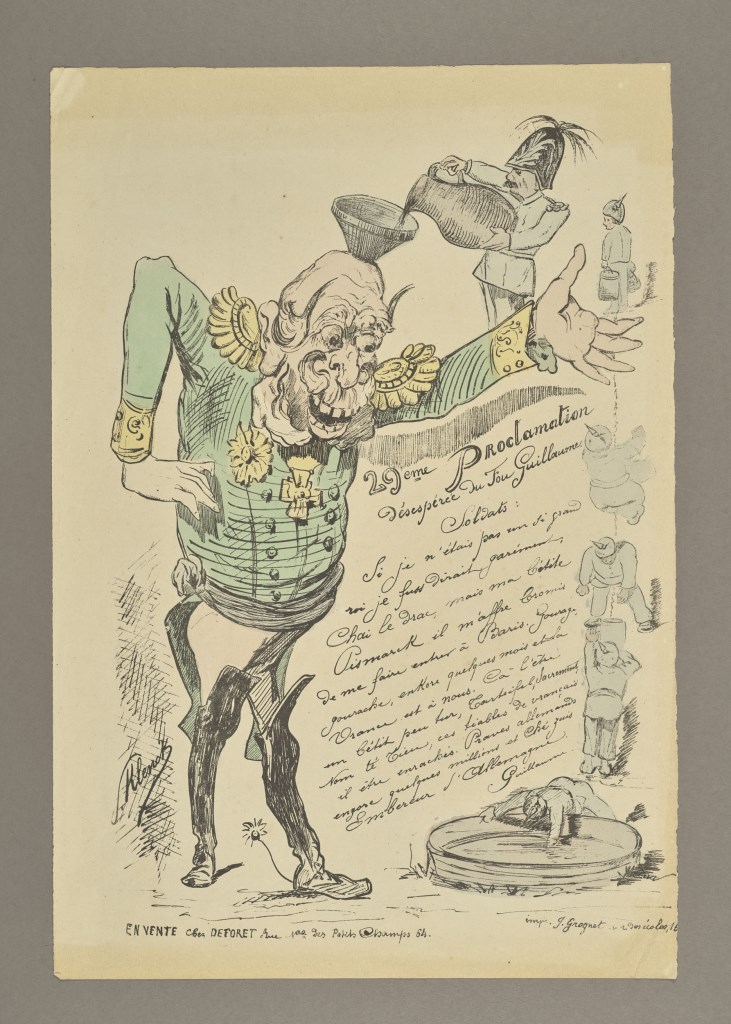 29eme Proclamation
Désespérée Du Fou Guillaume
Soldats :
Si je n'étais pas un si grand
roi je fuss dirait, garément,
Chai le drac, mais ma bétite
Pismarck il m'affre bromis
de me faire entrer à Paris. Gourage,
gourache, enkore quelques mois et la
Vrance est à nous. Cà l'être
un bétit peu tur, Tarteifel, Sacrement,
Nom té Tieu, ces tiables de vrançais
il être enrachés. Praves allemands
engore quelques millions et Chi suis
Embereur d'Allemagne
Guillaume
Klenck
EN VENTE chez DEFORET Rue des Petits Champs 54.
imp. J. Grognet